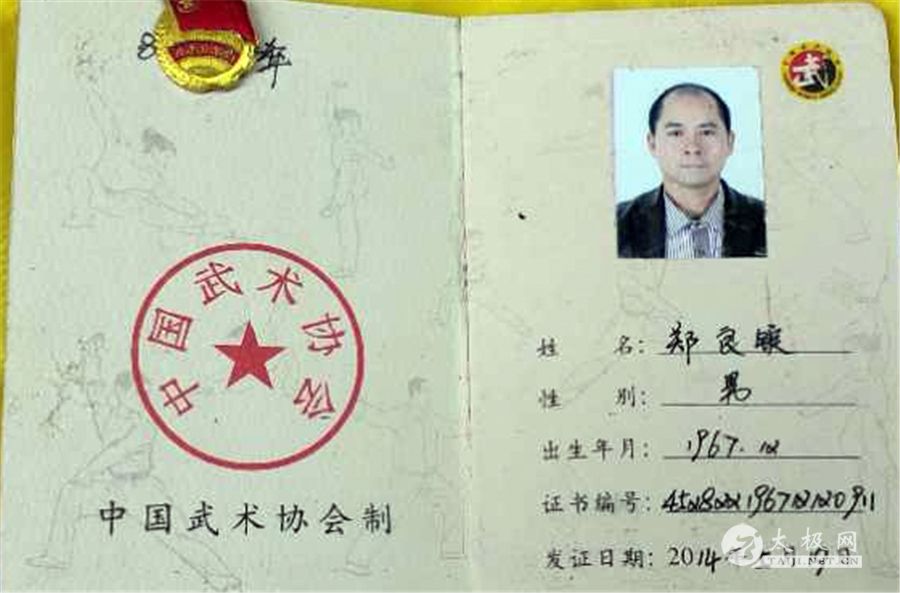 8 年
中国武术协会
中国武术协会制
武
姓 名: 郑良
性 别: 男
出生年月: 1967.12
证书编号:
发证日期: 2014年
太极网
TAIJI.NET.CN